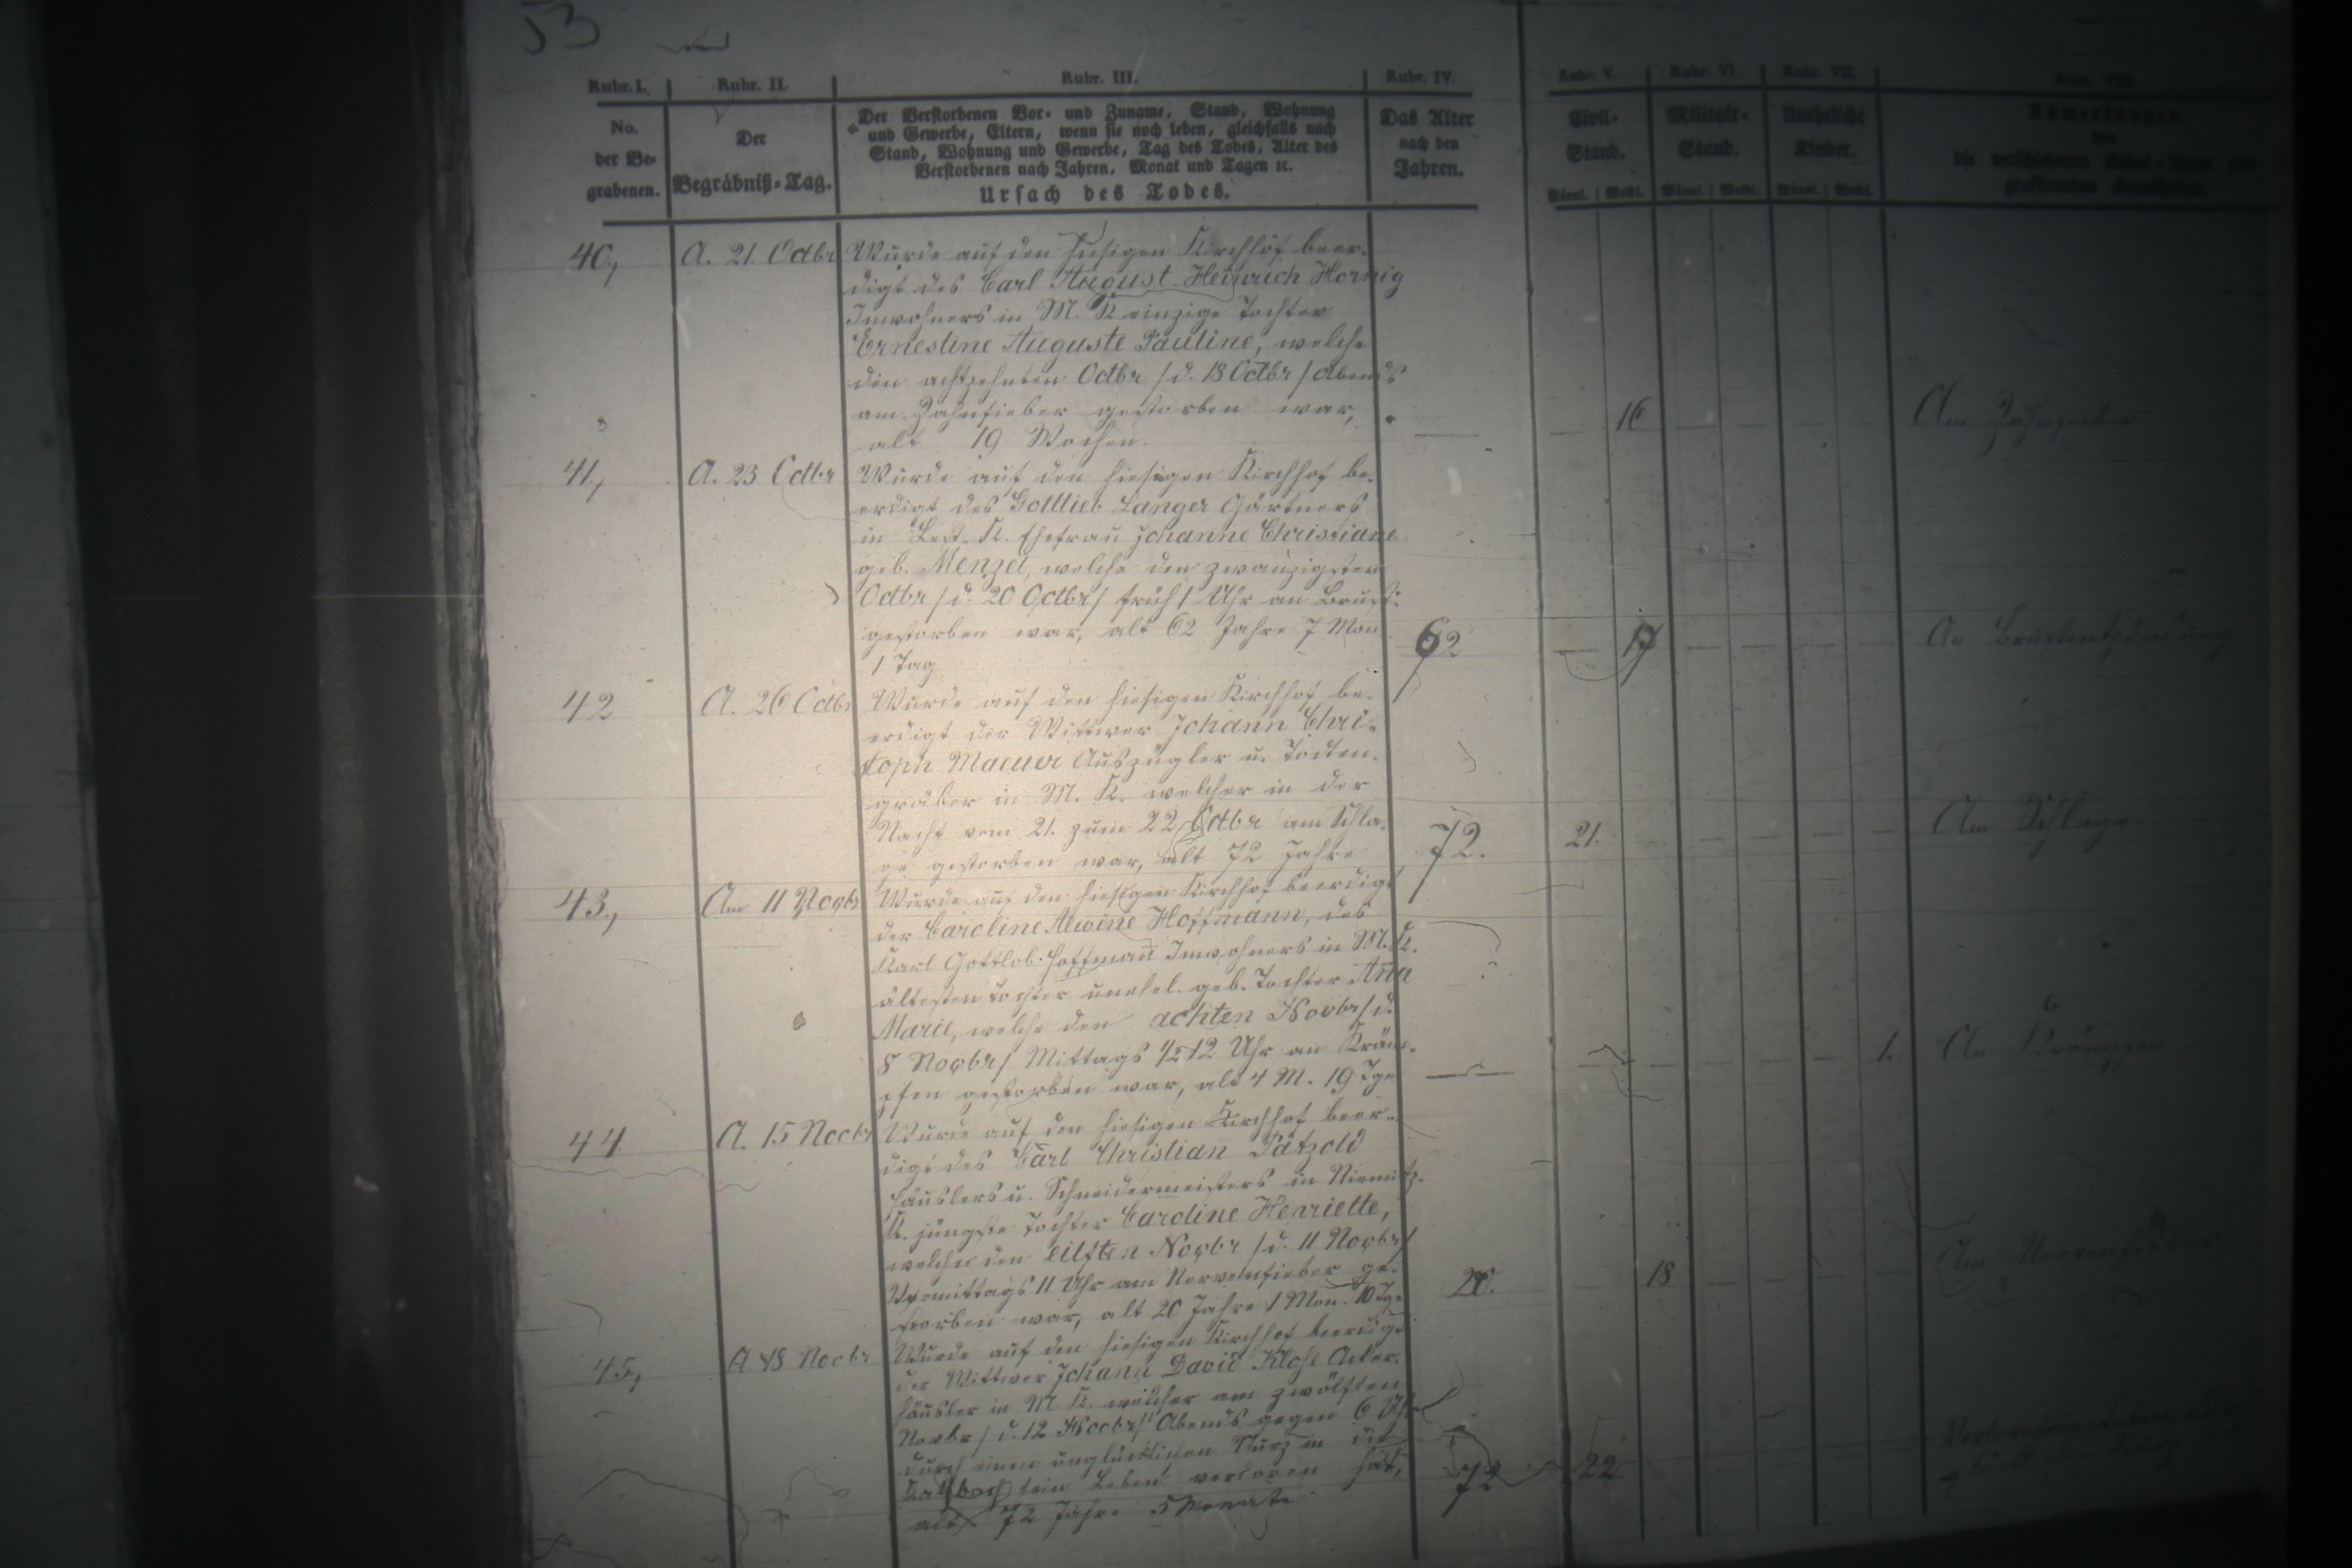 53
Rubr. I. Rubr. II. Rubr. III. Rubr. IV. Rubr. V. Rubr. VI. Rubr. VII. Rubr. VIII.
No.
der Be-
grabenen.
Der
Begräbniß-Tag.
Der Verstorbenen Vor- und Zuname, Stand, Wohnung
und Gewerbe, Eltern, wenn sie noch leben, gleichfalls nach
Stand, Wohnung und Gewerbe, Tag des Todes, Alter des
Verstorbenen nach Jahren, Monat und Tagen ꝛc.
Ursach des Todes.
Das Alter
nach den
Jahren.
Civil-
Stand.
Männl. Weibl.
Militair-
Stand.
Männl. Weibl.
Uneheliche
Kinder.
Männl. Weibl.
Anmerkungen
die verschiedenen Todes-
grassirenden Krankheiten.
40, A. 21. Octbr Wurde auf den hiesigen Kirchhof beer-
digt des Carl August Heinrich Hornig
Inwohners in M. K einzige Tochter
Ernestine Auguste Pauline, welche
den achtzehnten Octbr /d. 18 Octbr/ Abends
am Zahnfieber gestorben war, — — 16 — — — — Am Zahnfieber
alt 19 Wochen.
41, A. 23 Octbr Wurde auf den hiesigen Kirchhof be-
erdigt des Gottlieb Langer Gärtners
in K. Ehefrau Johanne Christiane
geb. Menzel, welche den zwanzigsten
Octbr /d. 20 Octbr/ früh 1 Uhr an Brust-
gestorben war, alt 62 Jahre 7 Mon 62 — 17 — — — — An Brustentzündung
1 Tag
42 A. 26 Octbr Wurde auf den hiesigen Kirchhof be-
erdigt der Wittwer Johann Chri-
stoph Auszügler u. Todten-
gräber in M. K. welcher in der
Nacht vom 21. zum 22 Octbr am Schla-
ge gestorben war, alt 72 Jahre 72. 21. — — — — — Am Schlage
43, Am 11 Novbr Wurde auf den hiesigen Kirchhof beerdigt
der Caroline Alwine Hoffmann, des
Karl Gottlob Hoffman Inwohners in M. K.
ältesten Tochter unehel. geb. Tochter Ana
Marie, welche den achten Novbr /d.
8 Novbr/ Mittags 1/2 12 Uhr an Kräm-
pfen gestorben war, alt 4 M. 19 Tge — — — — — — 1. An Krämpfen
44 A. 15 Novbr Wurde auf den hiesigen Kirchhof beer-
digt des Carl Christian Pätzold
Häuslers u. Schneidermeisters in Niemitz-
K. jüngste Tochter Caroline Henriette,
welche den eilften Novbr /d. 11 Novbr/
Vormittags 11 Uhr am Nervenfieber ge- 20. — 18 — — — — Am Nervenfieber
storben war, alt 20 Jahre 1 Mon. 10 Tge
45, A 18 Novbr Wurde auf den hiesigen Kirchhof beerdigt
der Wittwer Johann David Klose Acker-
häusler in M. K. welcher am zwölften
Novbr /d. 12 Novbr/ Abends gegen 6 Uhr
durch einen unglücklichen Sturz in die
Katzbach sein Leben verloren hat, 72 22 — — — — —
alt 72 Jahre 5 Monate